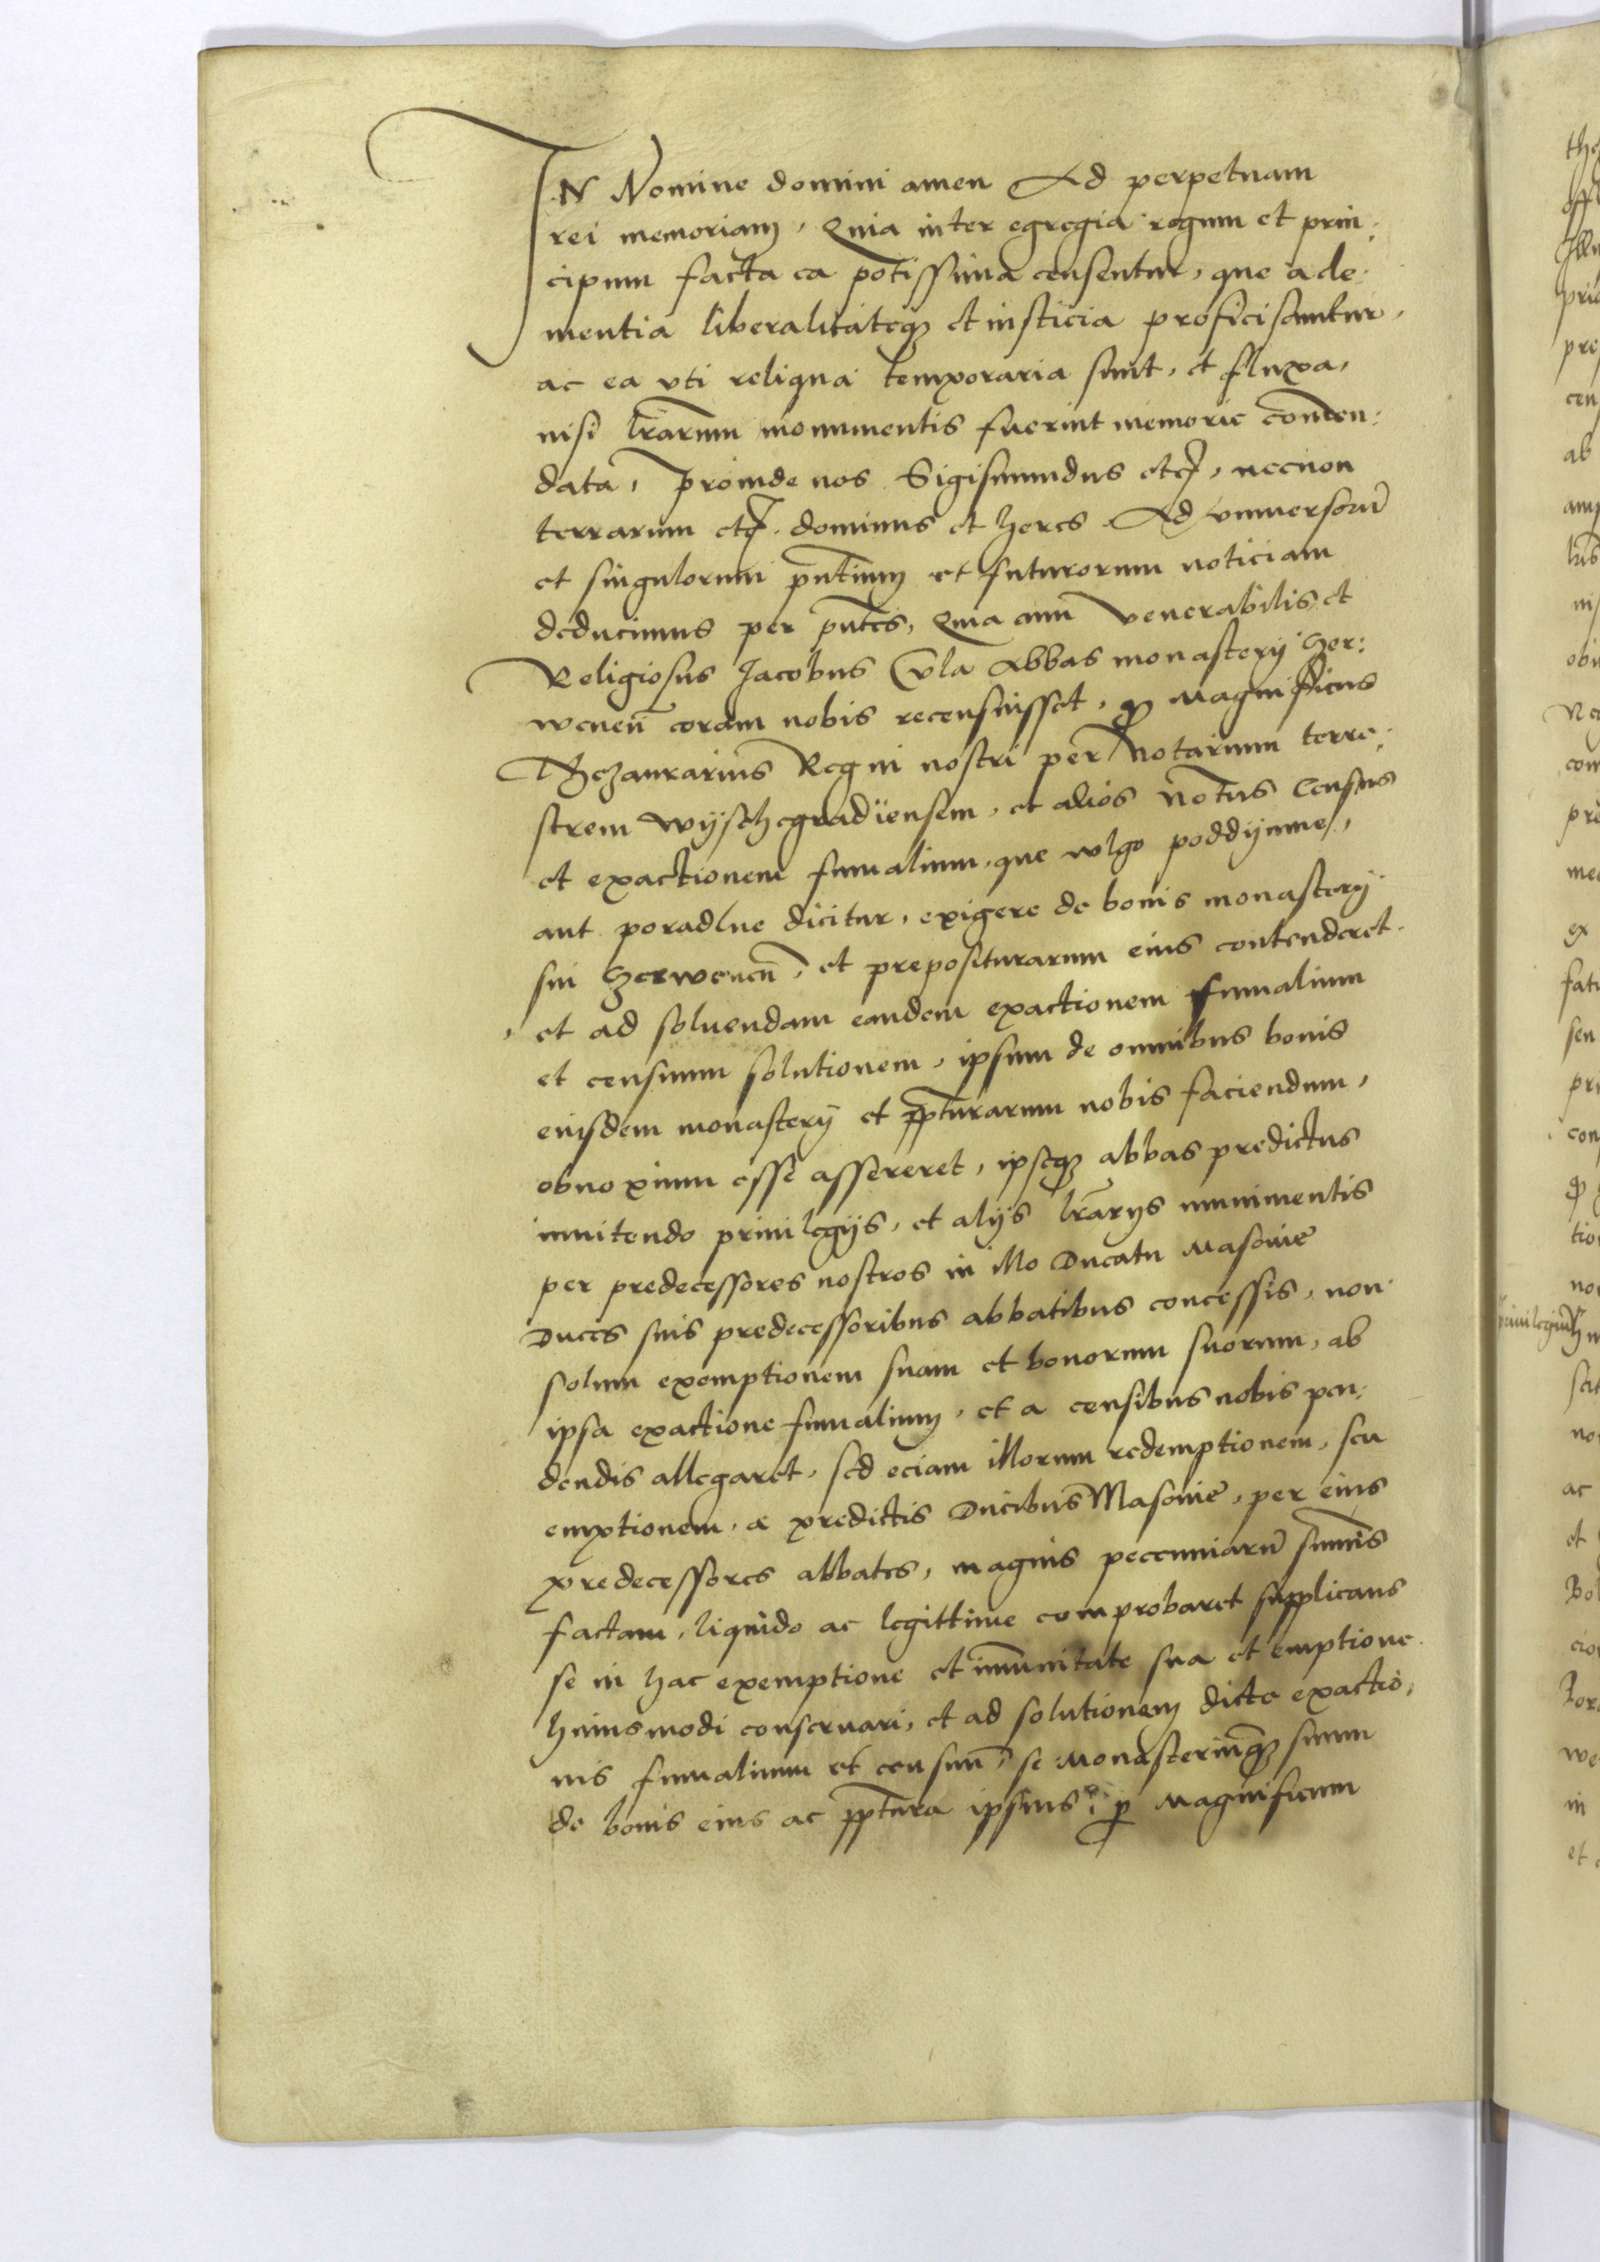 IN Nomine domini amen Ad perpetuam
rei memoriam, Quia inter egregia regum et prin:
cipum facta ea potissima censentur, que a cle:
mentia liberalitateqꝫ et iusticia proficiscuntur,
ac ea vti reliqua temporaria sunt, et fluxa,
nisi lr̄arum monumentis fuerint memorie com̄en:
data, Proinde nos Sigismundus etcꝭ, necnon
terrarum etcꝭ. dominus et heres Ad vniuersorū
et singulorum pn̄tium et futurorum noticiam
deducimus per pn̄tes, Quia cum Venerabilis et
Religiosus Jacobus abbas monasterij Czer:
wenen̄ coram nobis recensuisset, ꝙ Magnificus
Thezaurarius Regni nostri per Notarium terre:
strem Wyschegradiensem, et alios census
et exactionem fumalium, que wlgo poddymne,
aut poradlne dicitur, exigere de bonis monasterij
sui Czerwenen̄, et prepositurarum eius contenderet
et ad soluendam eandem exactionem fumalium
et censuum solutionem, ipsum de omnibus bonis
eiusdem monasterij et pp̄turarum nobis faciendum,
obnoxium esse assereret, ipseqꝫ abbas predictus
innitendo priuilegijs, et alijs lr̄arijs munimentis
per predecessores nostros in illo Ducatu Masouie
Duces suis predecessoribus abbatibus concessis, non
solum exemptionem suam et bonorum suorum, ab
ipsa exactione fumalium, et a censibus nobis pen:
dendis allegaret, sed eciam illorum redemptionem, seu
emptionem, a predictis Ducibus Masouie, per eius
predecessores abbates, magnis peccuniarū sum̄is
factam, liquido ac legittime comprobaret supplicans
se in hac exemptione et im̄unitate sua et emptione
huiusmodi conseruari, et ad solutionem dicte exactio:
nis fumalium et censuū, se Monasteriumqꝫ suum
de bonis eius ac pp̄tura ipsius, ꝑ Magnificum
priuilegium